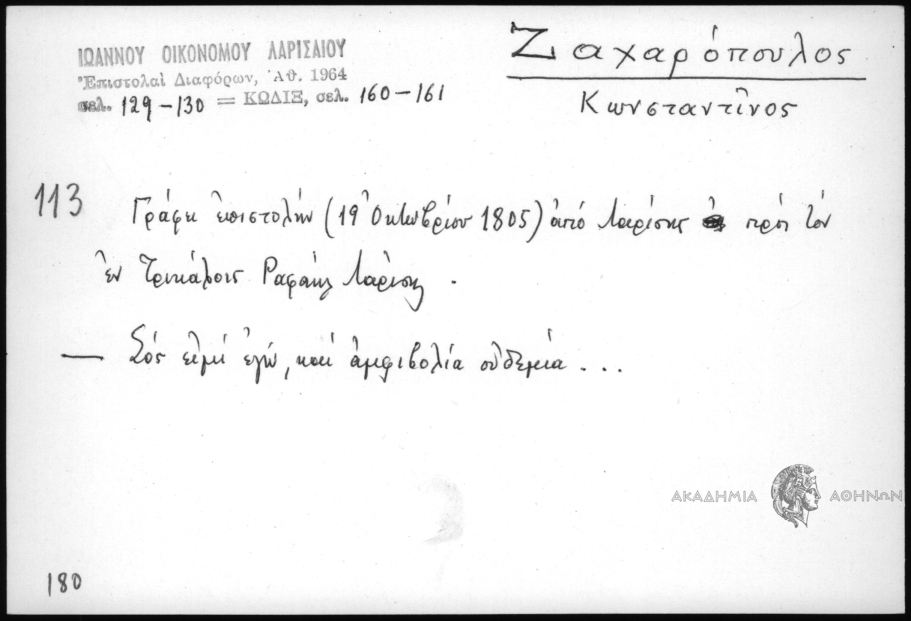 ΙΩΑΝΝΟΥ ΟΙΚΟΝΟΜΟΥ ΛΑΡΙΣΑΙΟΥ
Ἐπιστολαὶ Διαφόρων, Ἀθ. 1964
σελ. 129-130 = ΚΩΔΙΞ, σελ. 160-161
Ζαχαρόπουλος
Κωνσταντῖνος
113 Γράφει ἐπιστολὴν (19 Ὀκτωβρίου 1805) ἀπὸ Λαρίσης πρὸς τὸν
ἐν Τρικάλοις Ραφαὴλ Λαρίσης.
— Σός εἰμι ἐγώ, καὶ ἀμφιβολία οὐδεμία...
ΑΚΑΔΗΜΙΑ ΑΘΗΝΩΝ
180